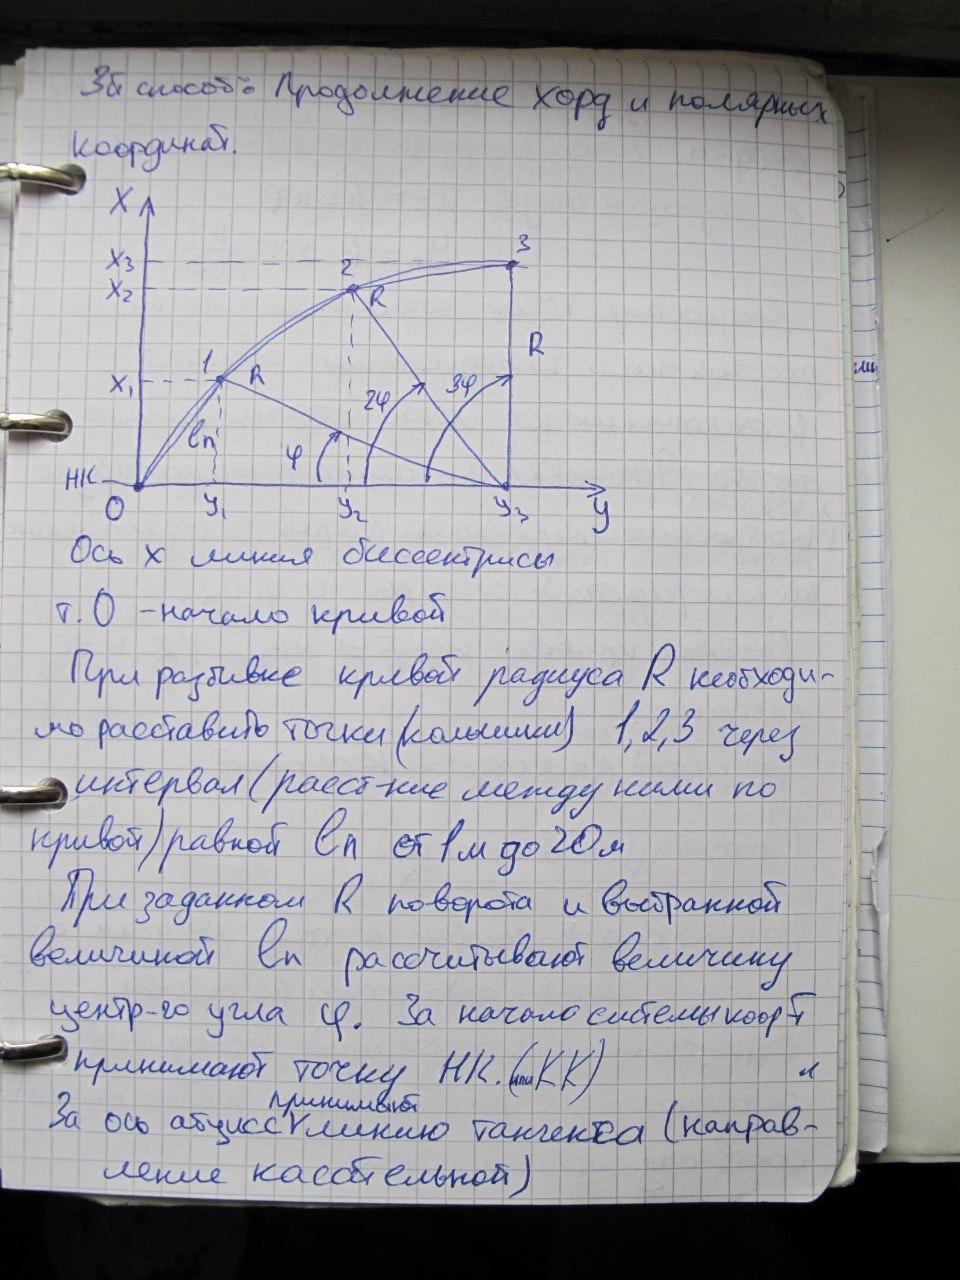 3й способ: Продолжение хорд и полярных
координат.
X
X3
X2
X1
3
2
1
R
R
R
ln
φ
2φ
3φ
НК
O
y1
y2
y3
y
Ось х линия биссектрисы
т. О - начало кривой
При разбивке кривой радиуса R необходи-
мо расставить точки (колышки) 1, 2, 3 через
интервал (расст-ние между ними по
кривой) равной ln от 1м до 20м
При заданном R поворота и выбранной
величиной ln рассчитывают величину
центр-го угла φ. За начало системы коорт
принимают точку НК. (или КК)
принимают
За ось абцисс линию тангенса (направ-
ление касательной)